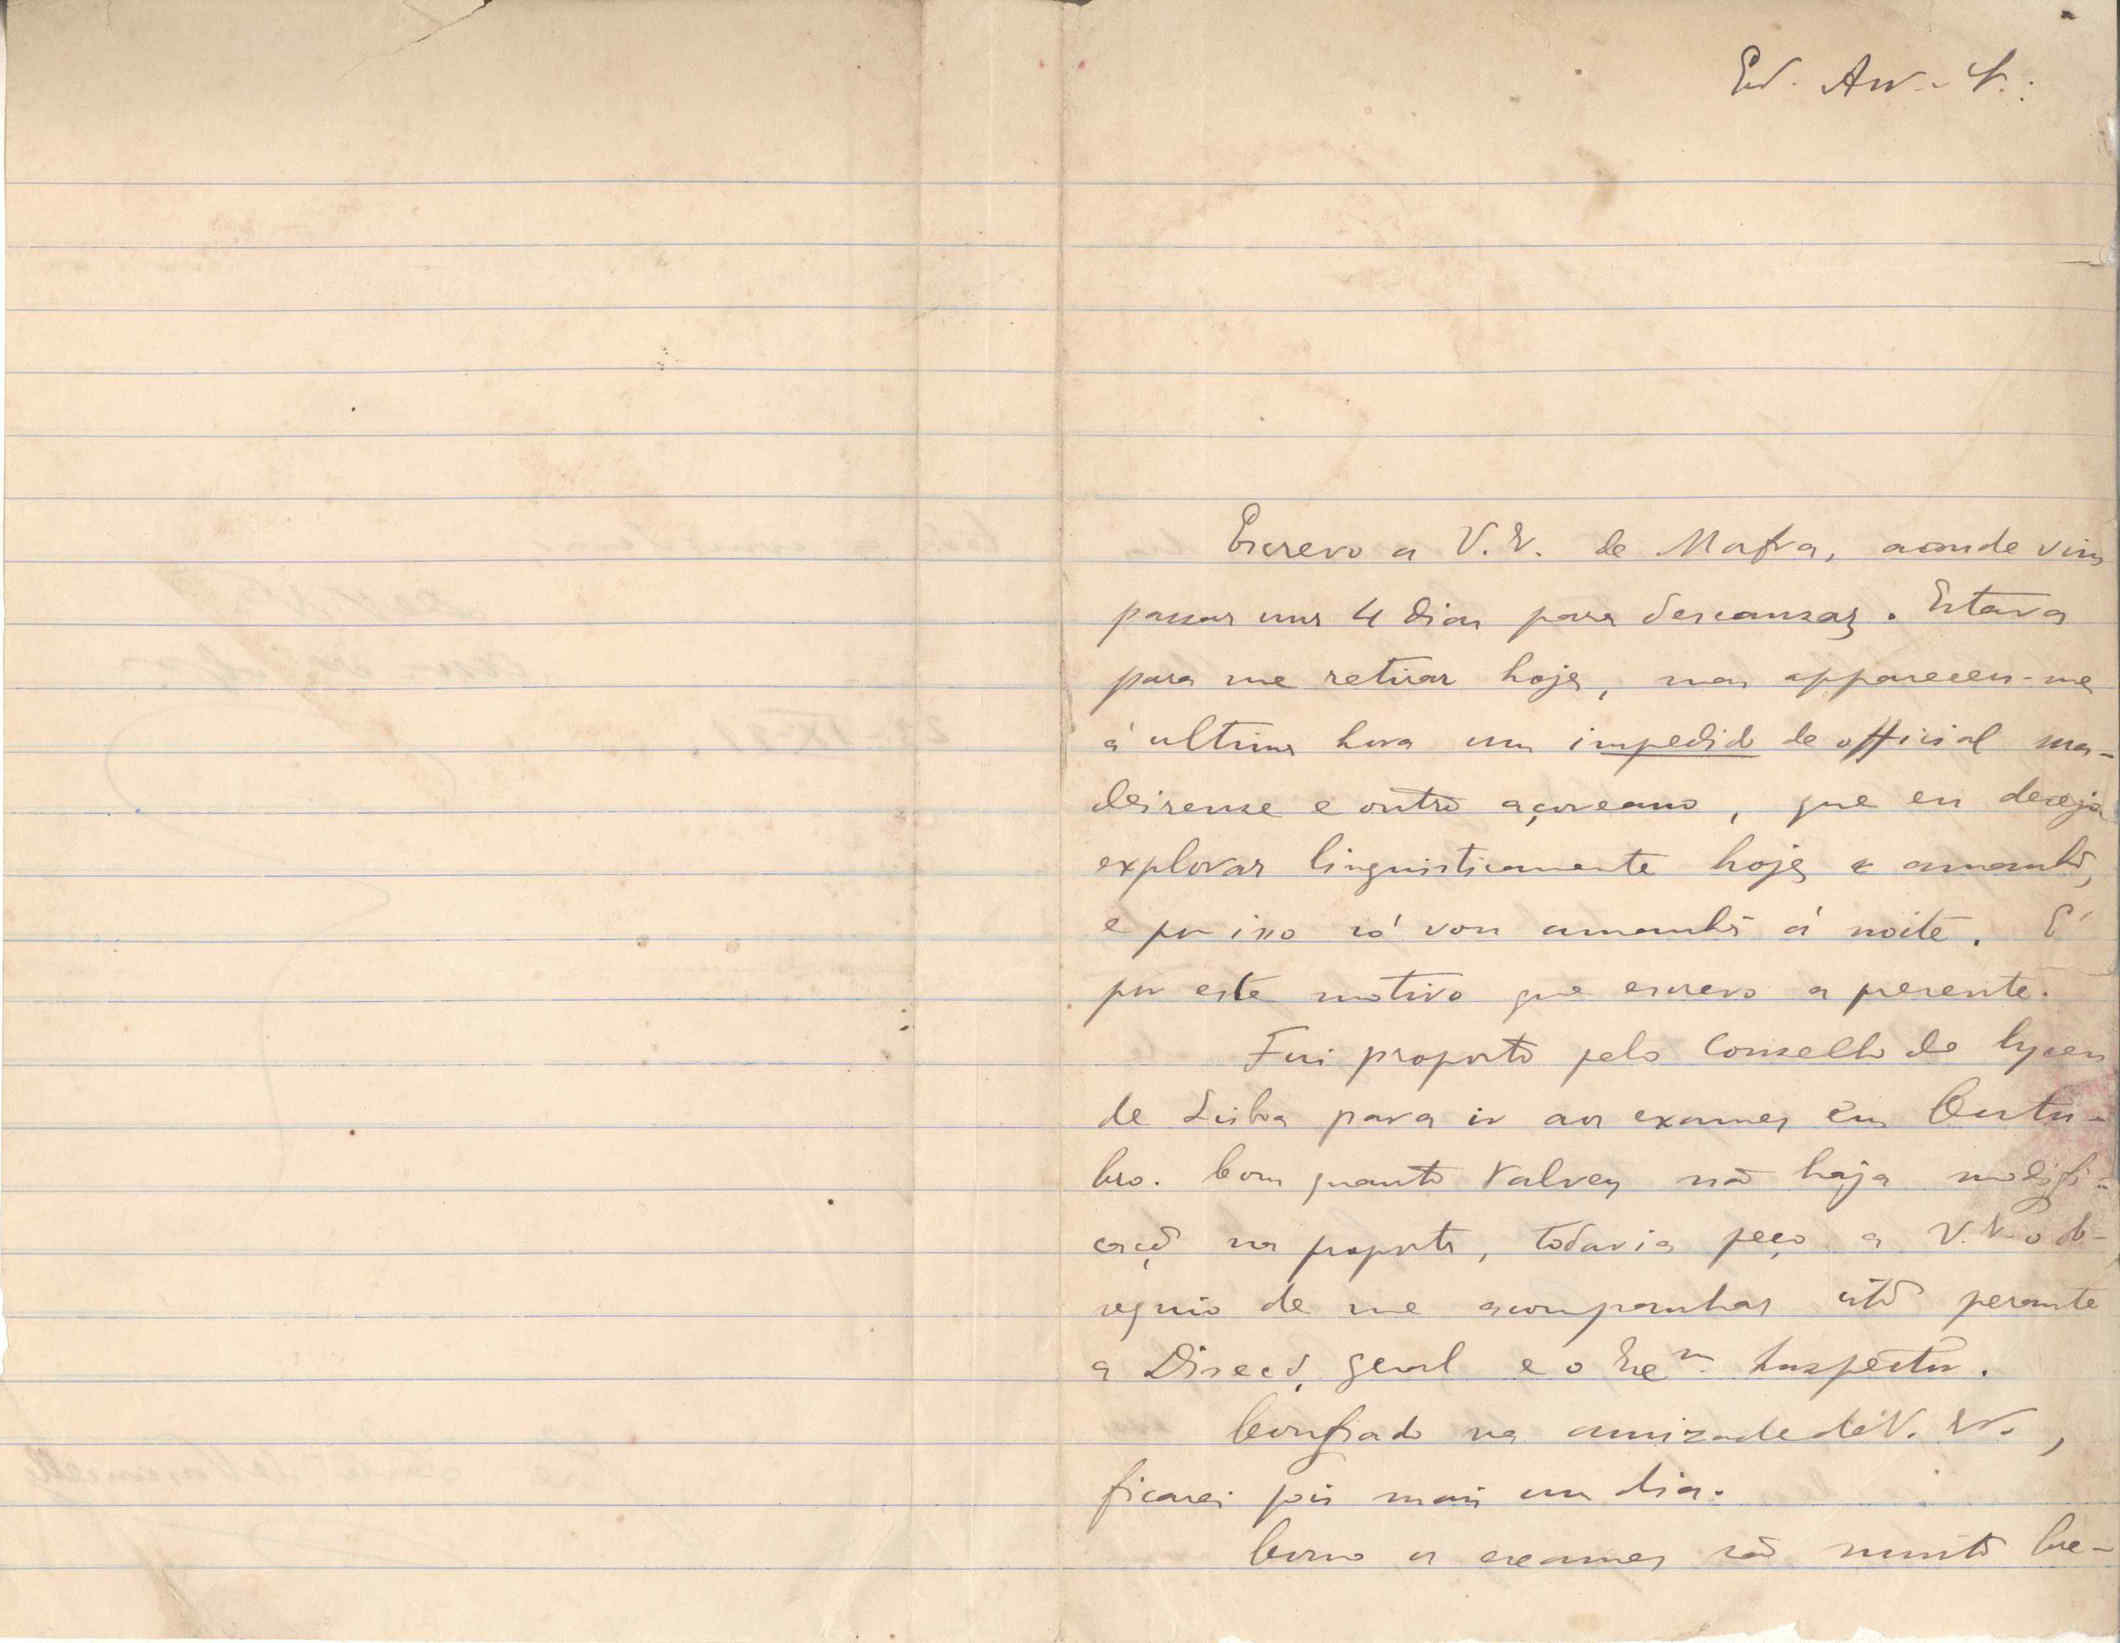 Ex. Am. Sr.:
Escrevo a V. Ex. de Mafra, aonde vim
passar uns 4 dias para descansar. Estava
para me retirar hoje, mas appareceu-me
á ultima hora um impedido de official ma-
deirense e outro açoreano, que eu desejo
explorar linguisticamente hoje e amanhã,
e por isso só vou amanhã á noite. É
por este motivo que escrevo a presente.
Fui proposto pelo Conselho do lyceu
de Lisboa para ir aos exames em Outu-
bro. Com quanto talvez não haja modifi-
cação na proposta, todavia peço a V. Ex. o ob-
sequio de me acompanhar perante
a Direcç. geral e o Exc.mo Inspector.
Confiado na amizade de V. Ex.,
ficarei pois mais um dia.
Como os exames são muito bre-